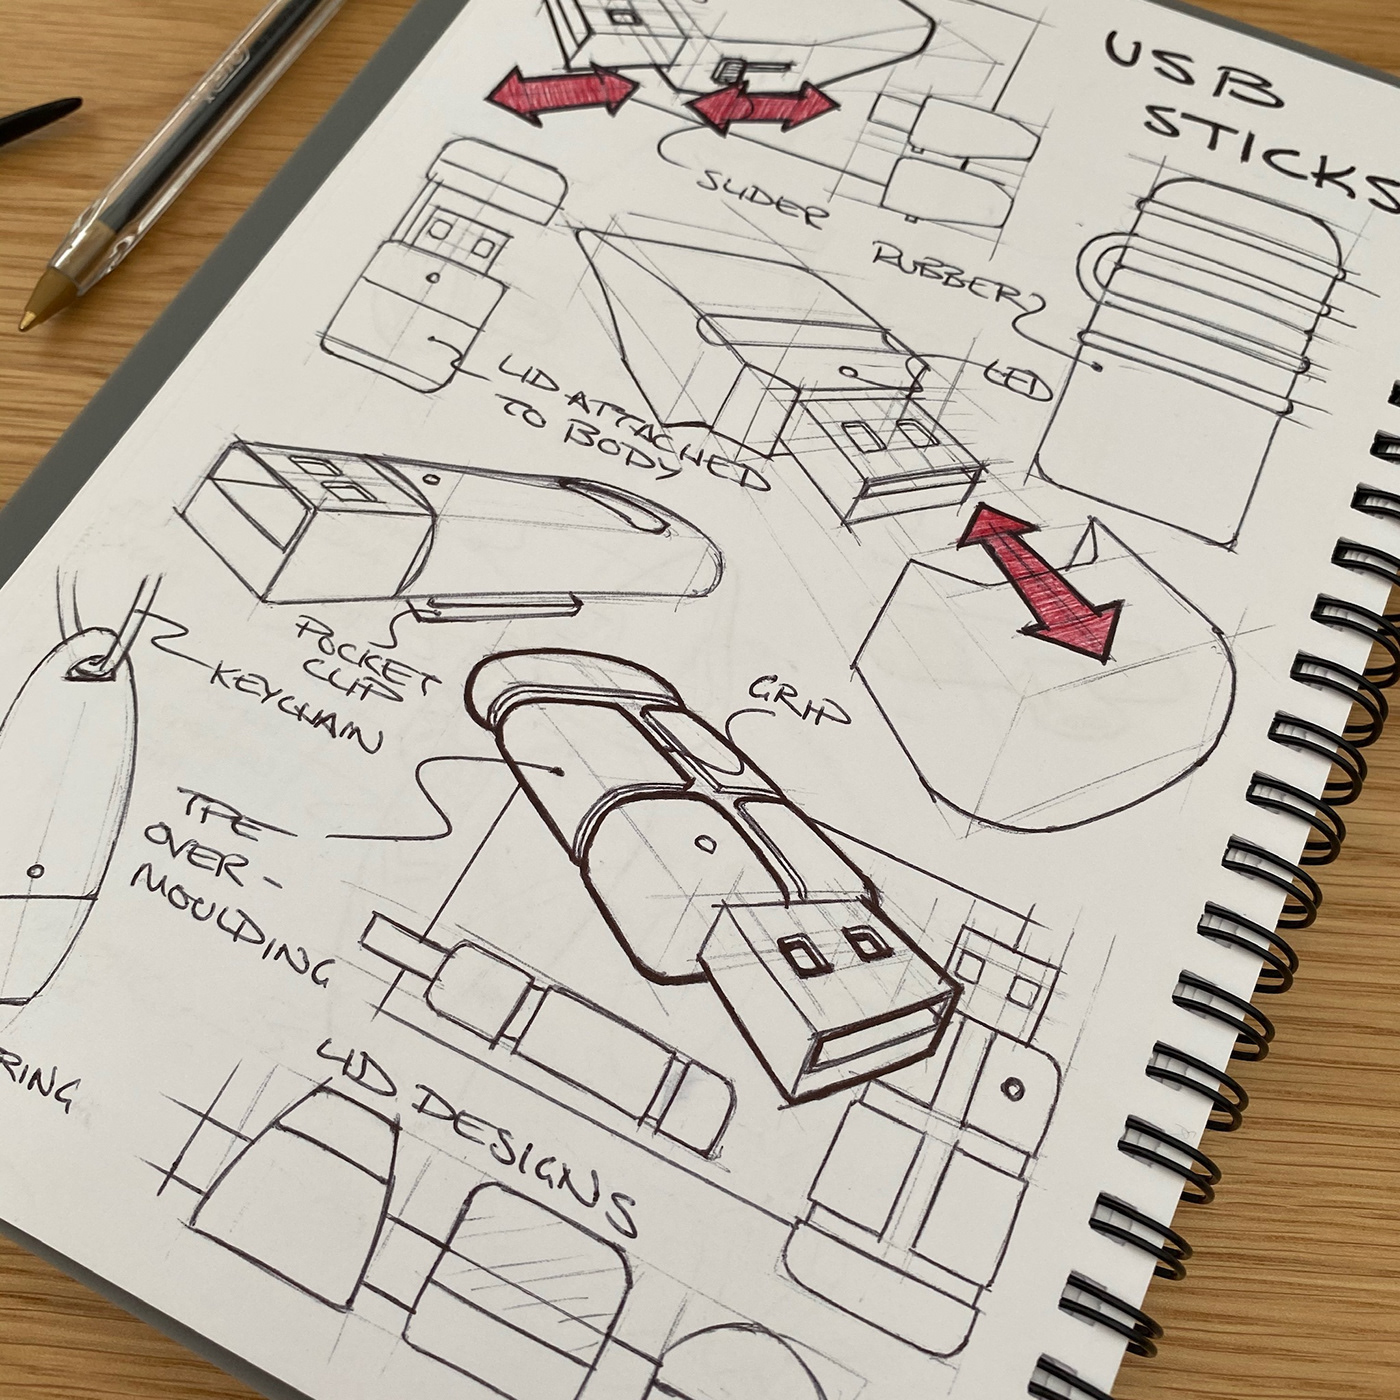 USB
STICKS
SLIDER
RUBBER
LED
LID ATTACHED
TO BODY
POCKET
CLIP
KEYCHAIN
GRIP
TPE
OVER-
MOULDING
LID DESIGNS
RING